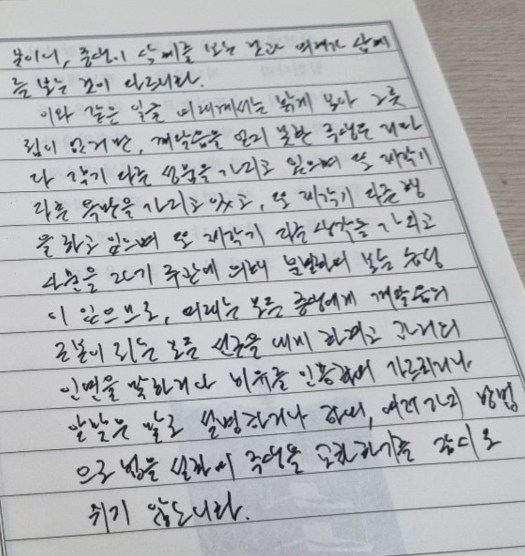 못이니, 중생이 삼계를 보는 것과 여래가 삼계
를 보는 것이 다르니라.
이와 같은 일을 여래께서는 밝게 보아 그릇
됨이 없건만, 깨달음을 얻지 못한 중생은 저마
다 각기 다른 성품을 가지고 있으며 또 제각기
다른 욕망을 가지고 있고, 또 제각기 다른 행
을 하고 있으며 또 제각기 다른 생각을 가지고
사물을 자기 주관에 의해 분별하여 보는 습성
이 있으므로, 여래는 모든 중생에게 깨달음의
근본이 되는 모든 선근을 내게 하려고 갖가지
인연을 말하거나 비유를 인용하여 가르치거나
알맞은 말로 설명하거나 하며, 여러가지 방법
으로 법을 설하여 중생을 교화하기를 잠시도
쉬지 않느니라.